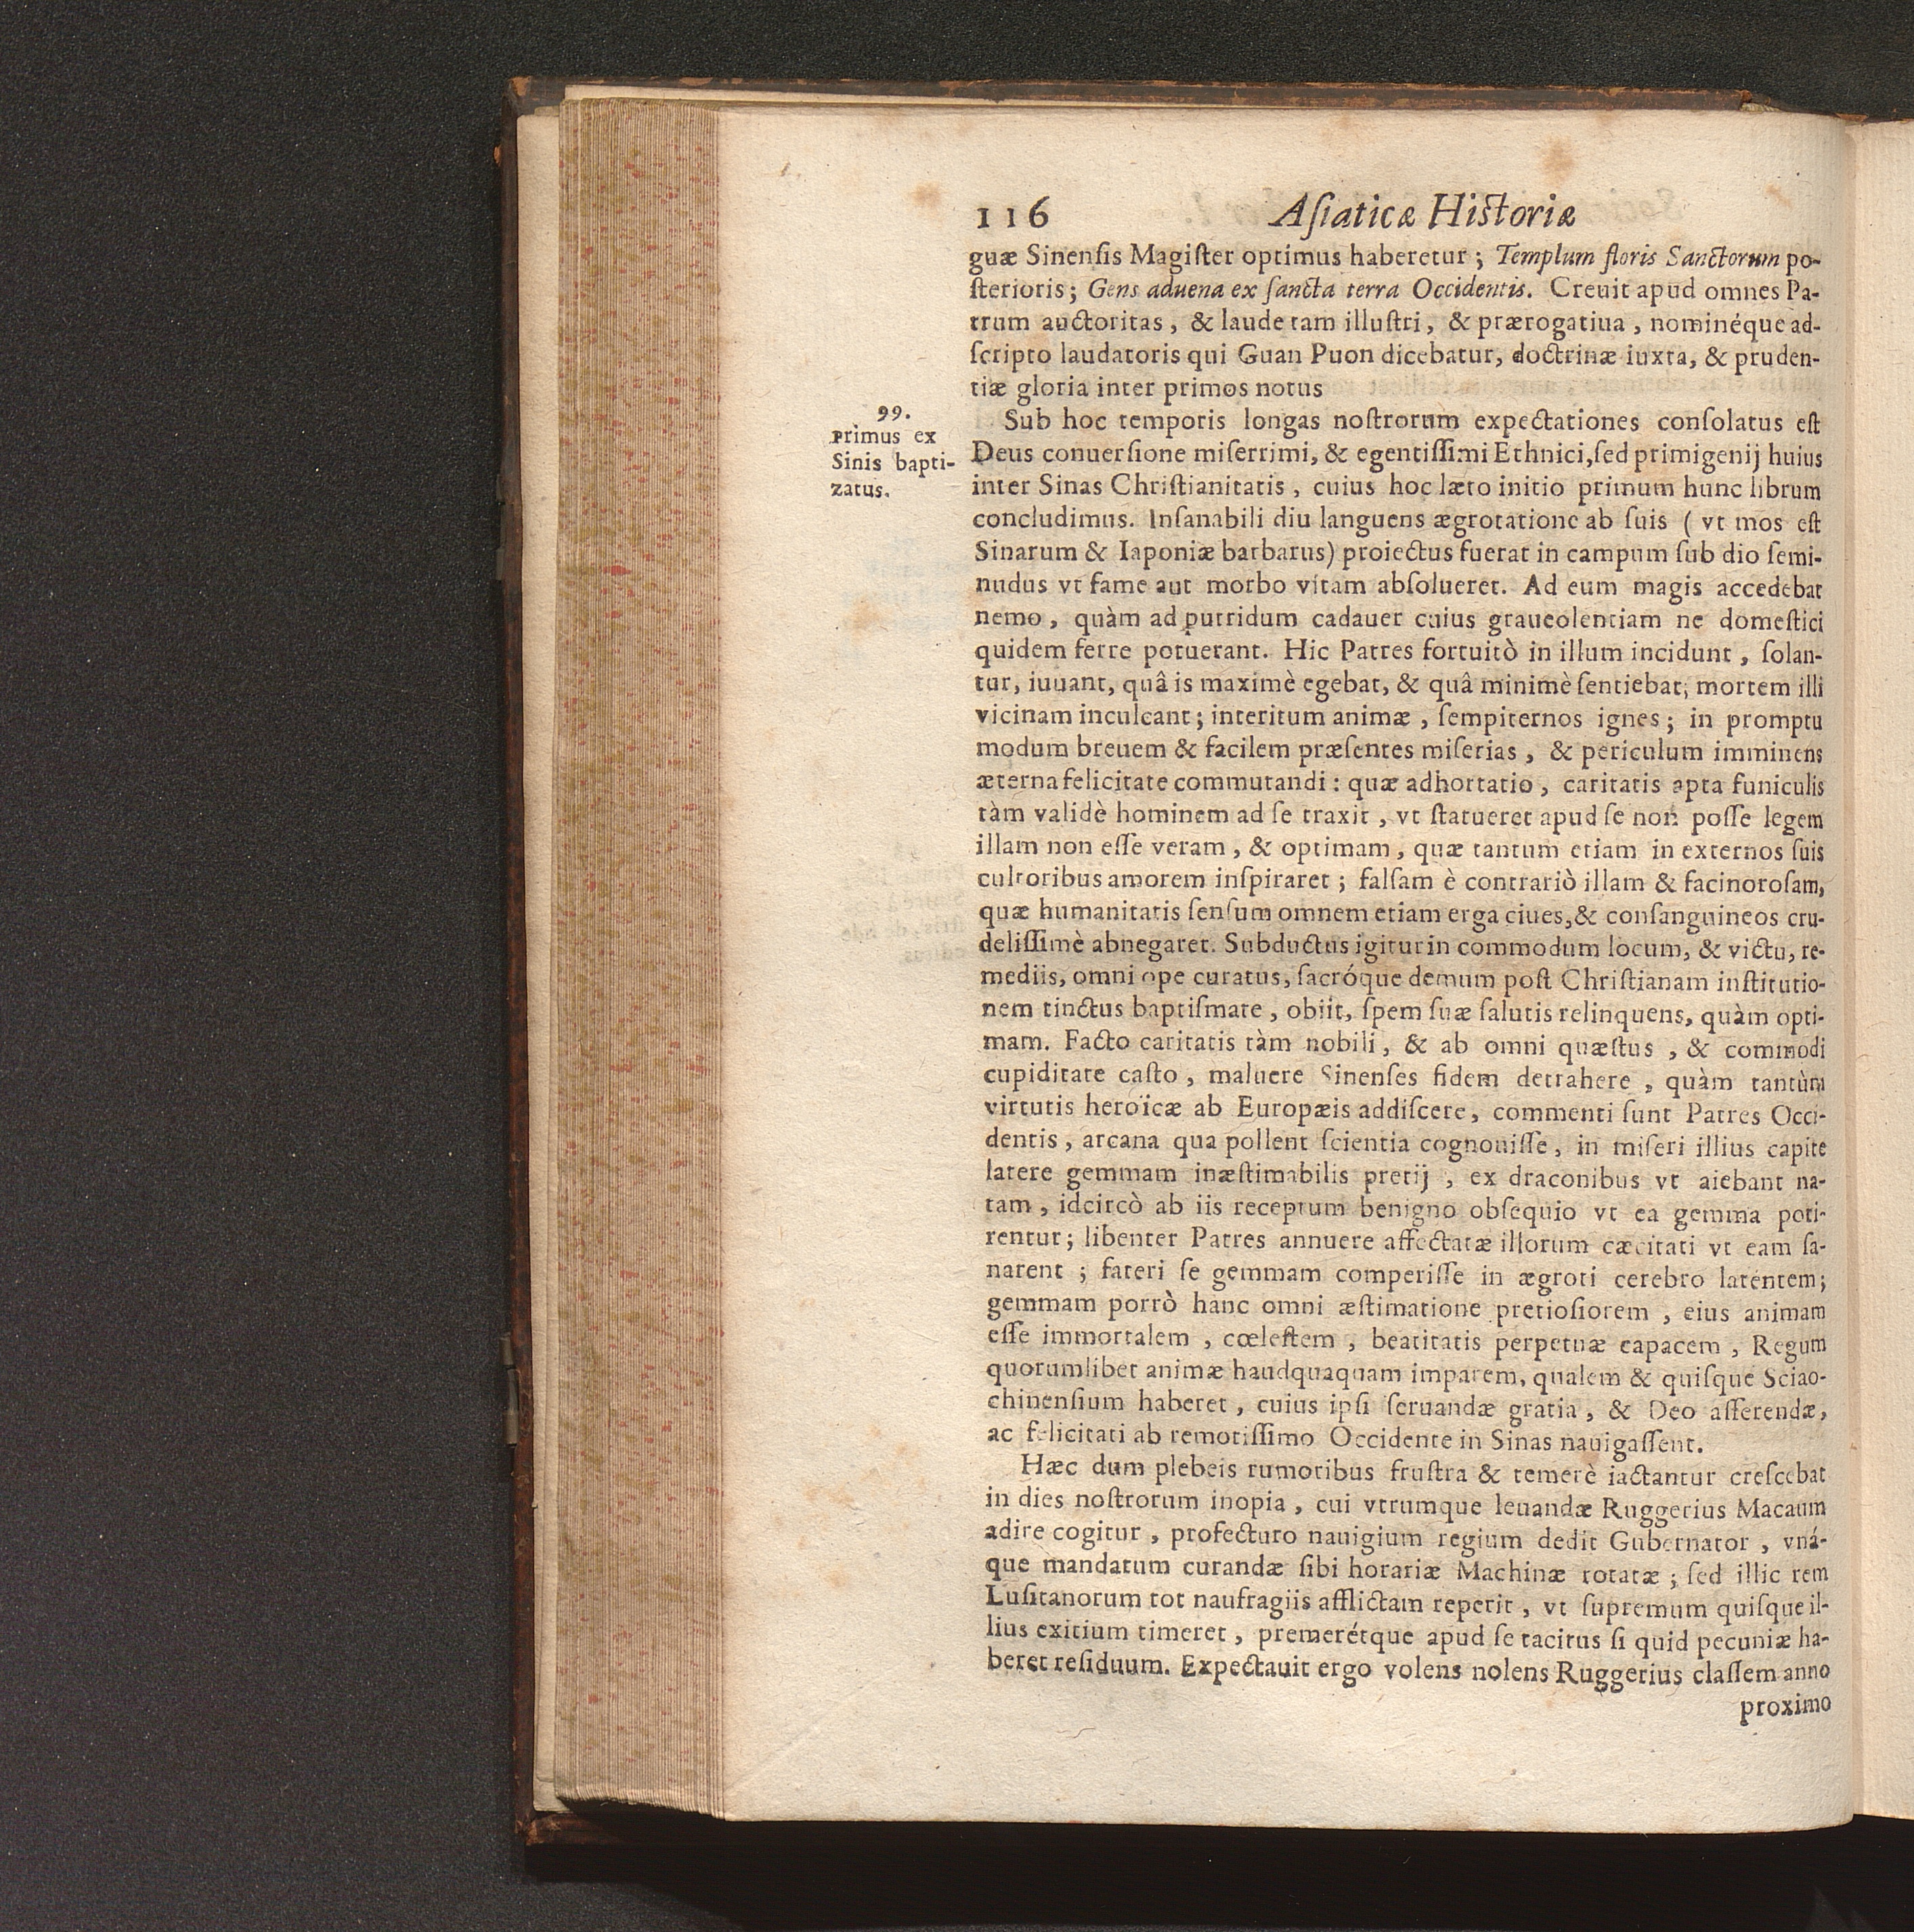 116 Aſiaticæ Hiſtoriæ
guæ Sinenſis Magiſter optimus haberetur; Templum floris Sanctorum po-
ſterioris; Gens aduena ex ſancta terra Occidentis. Creuit apud omnes Pa-
trum auctoritas, & laude tam illuſtri, & prærogatiua, nominéque ad-
ſcripto laudatoris qui Guan Puon dicebatur, doctrinæ iuxta, & pruden-
tiæ gloria inter primos notus
99.
primus ex
Sinis bapti-
zatus.
Sub hoc temporis longas noſtrorum expectationes conſolatus eſt
Deus conuerſione miſerrimi, & egentiſſimi Ethnici, ſed primigenij huius
inter Sinas Chriſtianitatis, cuius hoc læto initio primum hunc librum
concludimus. Inſanabili diu languens ægrotatione ab ſuis (vt mos eſt
Sinarum & Iaponiæ barbarus) proiectus fuerat in campum ſub dio ſemi-
nudus vt fame aut morbo vitam abſolueret. Ad eum magis accedebat
nemo, quàm ad putridum cadauer cuius graueolentiam ne domeſtici
quidem ferre potuerant. Hic Patres fortuitò in illum incidunt, ſolan-
tur, iuuant, quâ is maximè egebat, & quâ minimè ſentiebat; mortem illi
vicinam inculcant; interitum animæ, ſempiternos ignes; in promptu
modum breuem & facilem præſentes miſerias, & periculum imminens
æterna felicitate commutandi: quæ adhortatio, caritatis apta funiculis
tàm validè hominem ad ſe traxit, vt ſtatueret apud ſe non poſſe legem
illam non eſſe veram, & optimam, quæ tantum etiam in externos ſuis
cultoribus amorem inſpiraret; falſam è contrariò illam & facinoroſam,
quæ humanitatis ſenſum omnem etiam erga ciues, & conſanguineos cru-
deliſſimè abnegaret. Subductus igitur in commodum locum, & victu, re-
mediis, omni ope curatus, ſacróque demum poſt Chriſtianam inſtitutio-
nem tinctus baptiſmate, obiit, ſpem ſuæ ſalutis relinquens, quàm opti-
mam. Facto caritatis tàm nobili, & ab omni quæſtus, & commodi
cupiditate caſto, maluere Sinenſes fidem detrahere, quàm tantùm
virtutis heroïcæ ab Europæis addiſcere, commenti ſunt Patres Occi-
dentis, arcana qua pollent ſcientia cognouiſſe, in miſeri illius capite
latere gemmam inæſtimabilis pretij, ex draconibus vt aiebant na-
tam, idcircò ab iis receptum benigno obſequio vt ea gemma poti-
rentur; libenter Patres annuere affectatæ illorum cæcitati vt eam ſa-
narent; fateri ſe gemmam comperiſſe in ægroti cerebro latentem;
gemmam porrò hanc omni æſtimatione pretioſiorem, eius animam
eſſe immortalem, cœleſtem, beatitatis perpetuæ capacem, Regum
quorumlibet animæ haudquaquam imparem, qualem & quiſque Sciao-
chinenſium haberet, cuius ipſi ſeruandæ gratia, & Deo aſſerendæ,
ac felicitati ab remotiſſimo Occidente in Sinas nauigaſſent.
Hæc dum plebeis rumoribus fruſtra & temerè iactantur creſcebat
in dies noſtrorum inopia, cui vtrumque leuandæ Ruggerius Macaum
adire cogitur, profecturo nauigium regium dedit Gubernator, vná-
que mandatum curandæ ſibi horariæ Machinæ rotatæ; ſed illic rem
Luſitanorum tot naufragiis afflictam reperit, vt ſupremum quiſque il-
lius exitium timeret, premerétque apud ſe tacitus ſi quid pecuniæ ha-
beret reſiduum. Expectauit ergo volens nolens Ruggerius claſſem anno
proximo